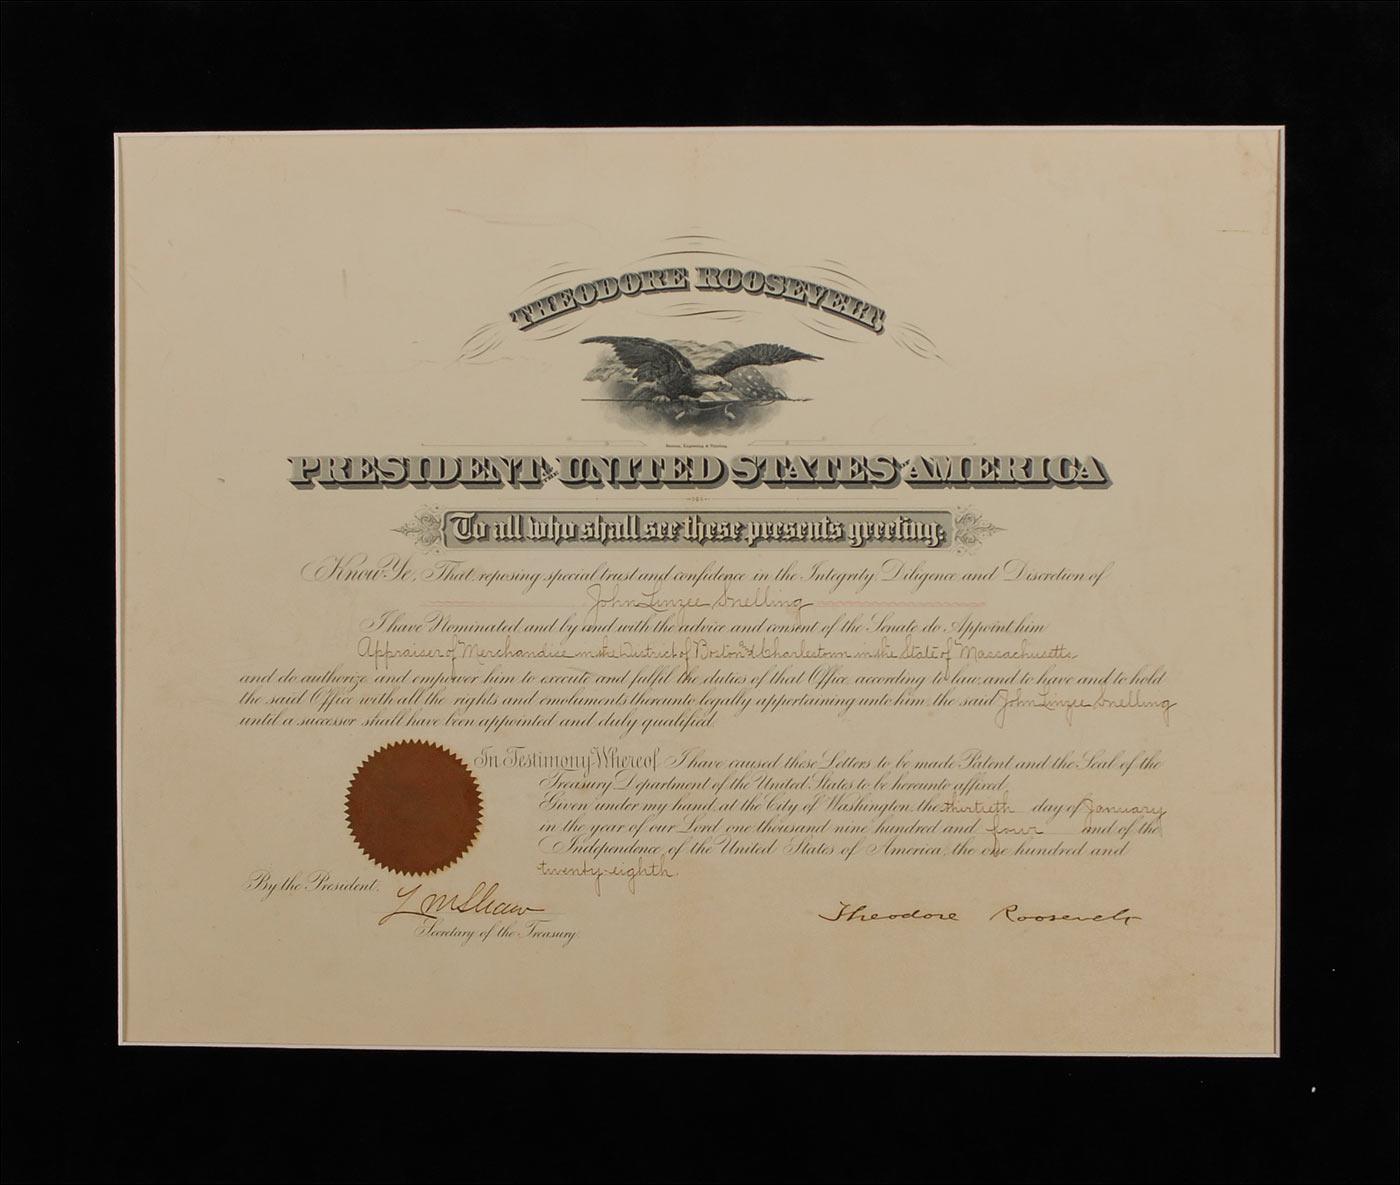 THEODORE ROOSEVELT,
Bureau, Engraving & Printing.
PRESIDENT OF THE UNITED STATES OF AMERICA
To all who shall see these presents greeting:
Know Ye, That reposing special trust and confidence in the Integrity, Diligence and Discretion of
John Linzee Snelling
I have Nominated and by and with the advice and consent of the Senate do Appoint him
Appraiser of Merchandise in the District of Boston & Charlestown in the State of Massachusetts
and do authorize and empower him to execute and fulfil the duties of that Office according to law and to have and to hold
the said Office with all the rights and emoluments thereunto legally appertaining unto him the said John Linzee Snelling
until a successor shall have been appointed and duly qualified.
In Testimony Whereof I have caused these Letters to be made Patent and the Seal of the
Treasury Department of the United States to be hereunto affixed.
Given under my hand, at the City of Washington, the thirtieth day of January
in the year of our Lord one thousand nine hundred and four and of the
Independence of the United States of America, the one hundred and
twenty-eighth.
By the President:
L M Shaw
Secretary of the Treasury.
Theodore Roosevelt